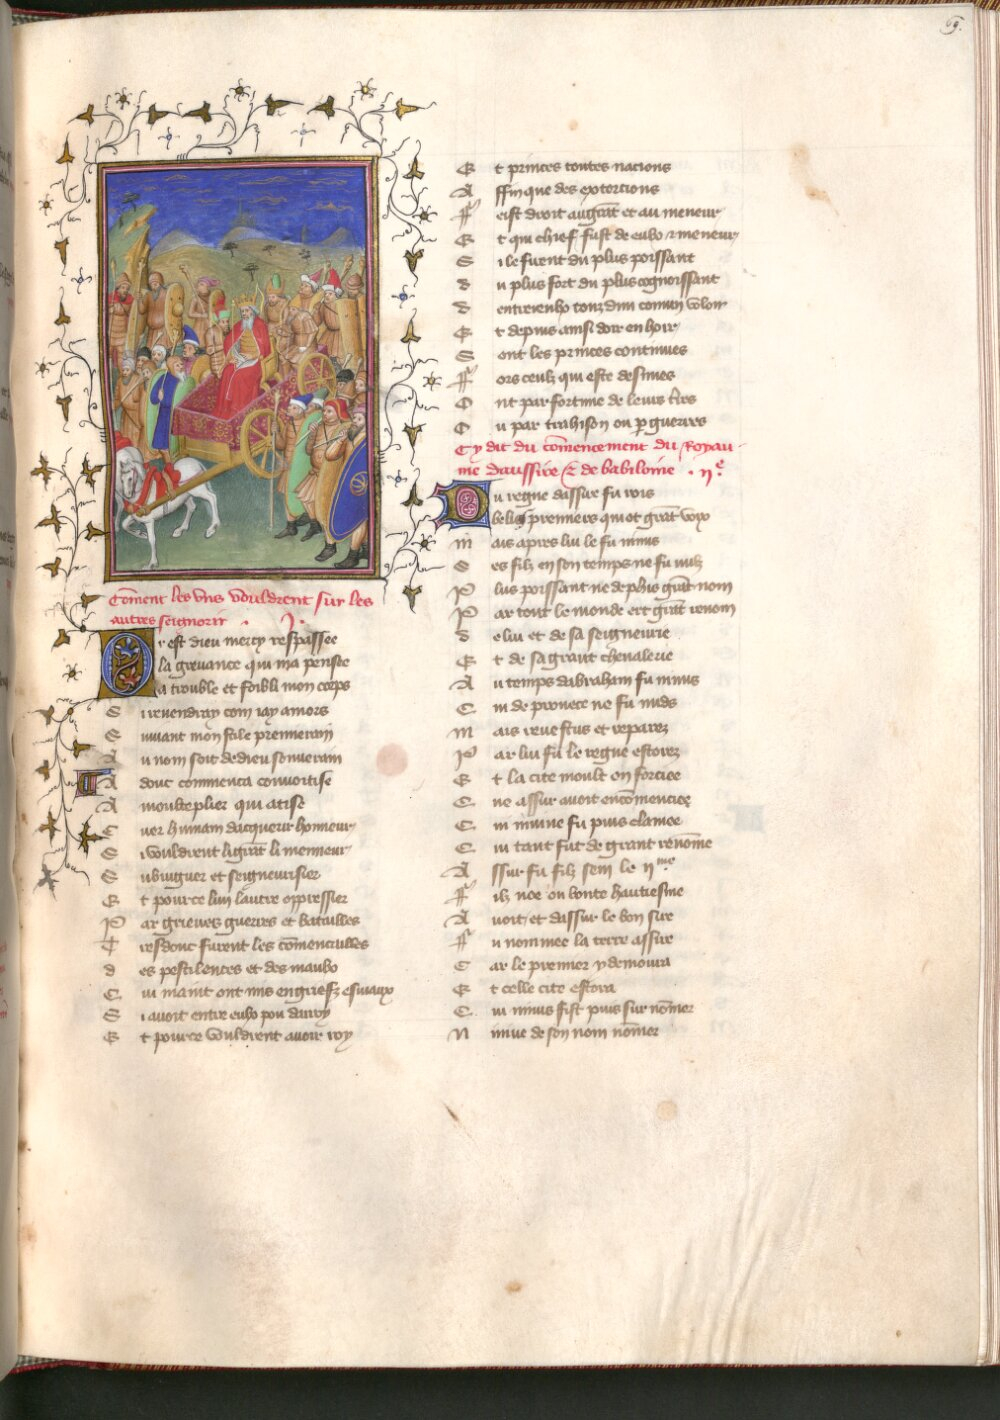 69.
Coment les uns vouldrent sur les
autres seignorir . J.
Or est dieu mercy respassee
La grevance qui ma pensee
A trouble et foibli mon corps
Si revendray com iay amors
Suivant mon stile premierain
Au nom soit de dieu souverain
Adonc commenca convoitise
A moulteplier qui atise
Cuer humain dacquerir honneur
Si vouldrent li grãt li menneur
Subiuguer et seigneurisier
Et pource lun lautre oppressier
Par grieves guerres et batailles
Tres donc furent les cõmencailles
des pestilences et des maulx
Cui maint ont mis en griefz esmaux
Si avoit entre eulx pou darroy
Et pource vouldrent avoir roy
Et princes toutes nacions
Affin que des extorcions
Feist droit au grãt et au meneur
Et qui chief fust de eulx et meneur
Si le firent du plus poissant
du plus fort du plus cognoissant
dentreeulx touz dun comun vloir
Et depuis ainsi doir en hoir
Sont les princes continues
Fors ceulx qui este desmues
Ont par fortune de leurs t̃res
Ou par trahison ou p guerres
Cy dit du cõmencement du Royau-
me daussire et de babiloine . ij.e
Du regne dassire fu rois
belus premiers qui ot grãt voix
mais apres lui le fu ninus
Ses filz en son temps ne fu nulz
Plus poissant ne de plus grãt nom
Par tout le monde ert grãt renom
de lui et de sa seigneurie
Et de sa grant chevalerie
Au temps dabraham fu ninus
Cui de prouece ne fu nuds
mais revestus et reparez
Par lui fu le regne estorez
Et la cite moult enforciee
Cne assur avoit encõmenciee
Cui ninive fu puis clamee
Cui tant fut de grant renõmee
Assur fu filz sem le ijme
Filz noe ou bonte hautiesme
Avoit et dassur le bon sire
Fu nommee la terre assire
Car le premier y demoura
Et celle cite estora
Cui ninus fist puis sur nõmer
Ninive de son nom nõmer